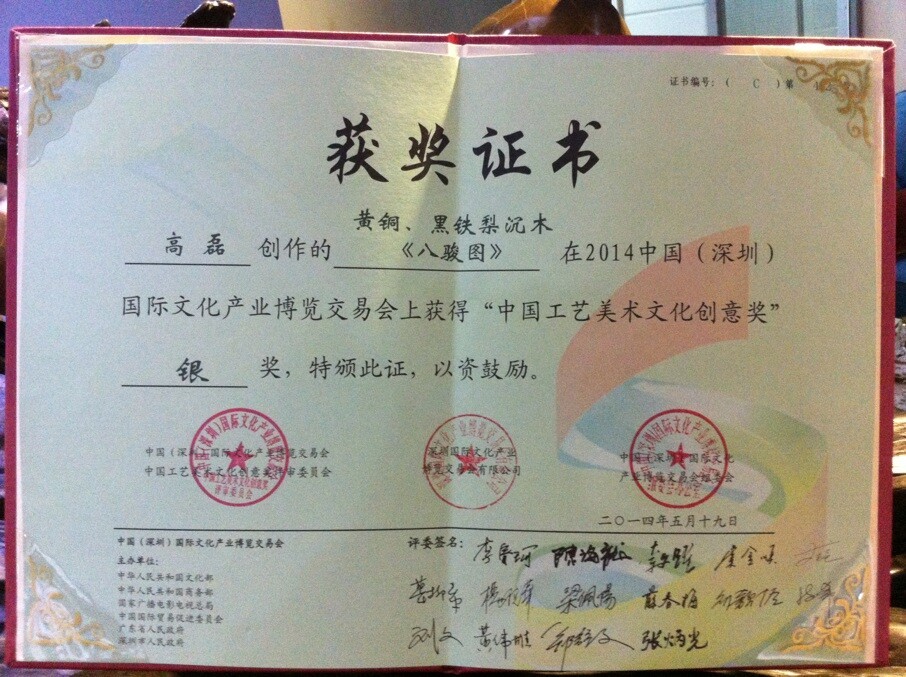 证书编号：（ C ）第
获奖证书
黄铜、黑铁梨沉木
高磊 创作的 《八骏图》 在2014中国（深圳）
国际文化产业博览交易会上获得“中国工艺美术文化创意奖”
银 奖，特颁此证，以资鼓励。
中国（深圳）国际文化产业博览交易会
中国工艺美术文化创意奖评审委员会
深圳国际文化产业
博览交易会有限公司
中国（深圳）国际文化
产业博览交易会组委会
二〇一四年五月十九日
中国（深圳）国际文化产业博览交易会
主办单位：
中华人民共和国文化部
中华人民共和国商务部
国家广播电影电视总局
中国国际贸易促进委员会
广东省人民政府
深圳市人民政府
评委签名：
黄伟雄
张炳光